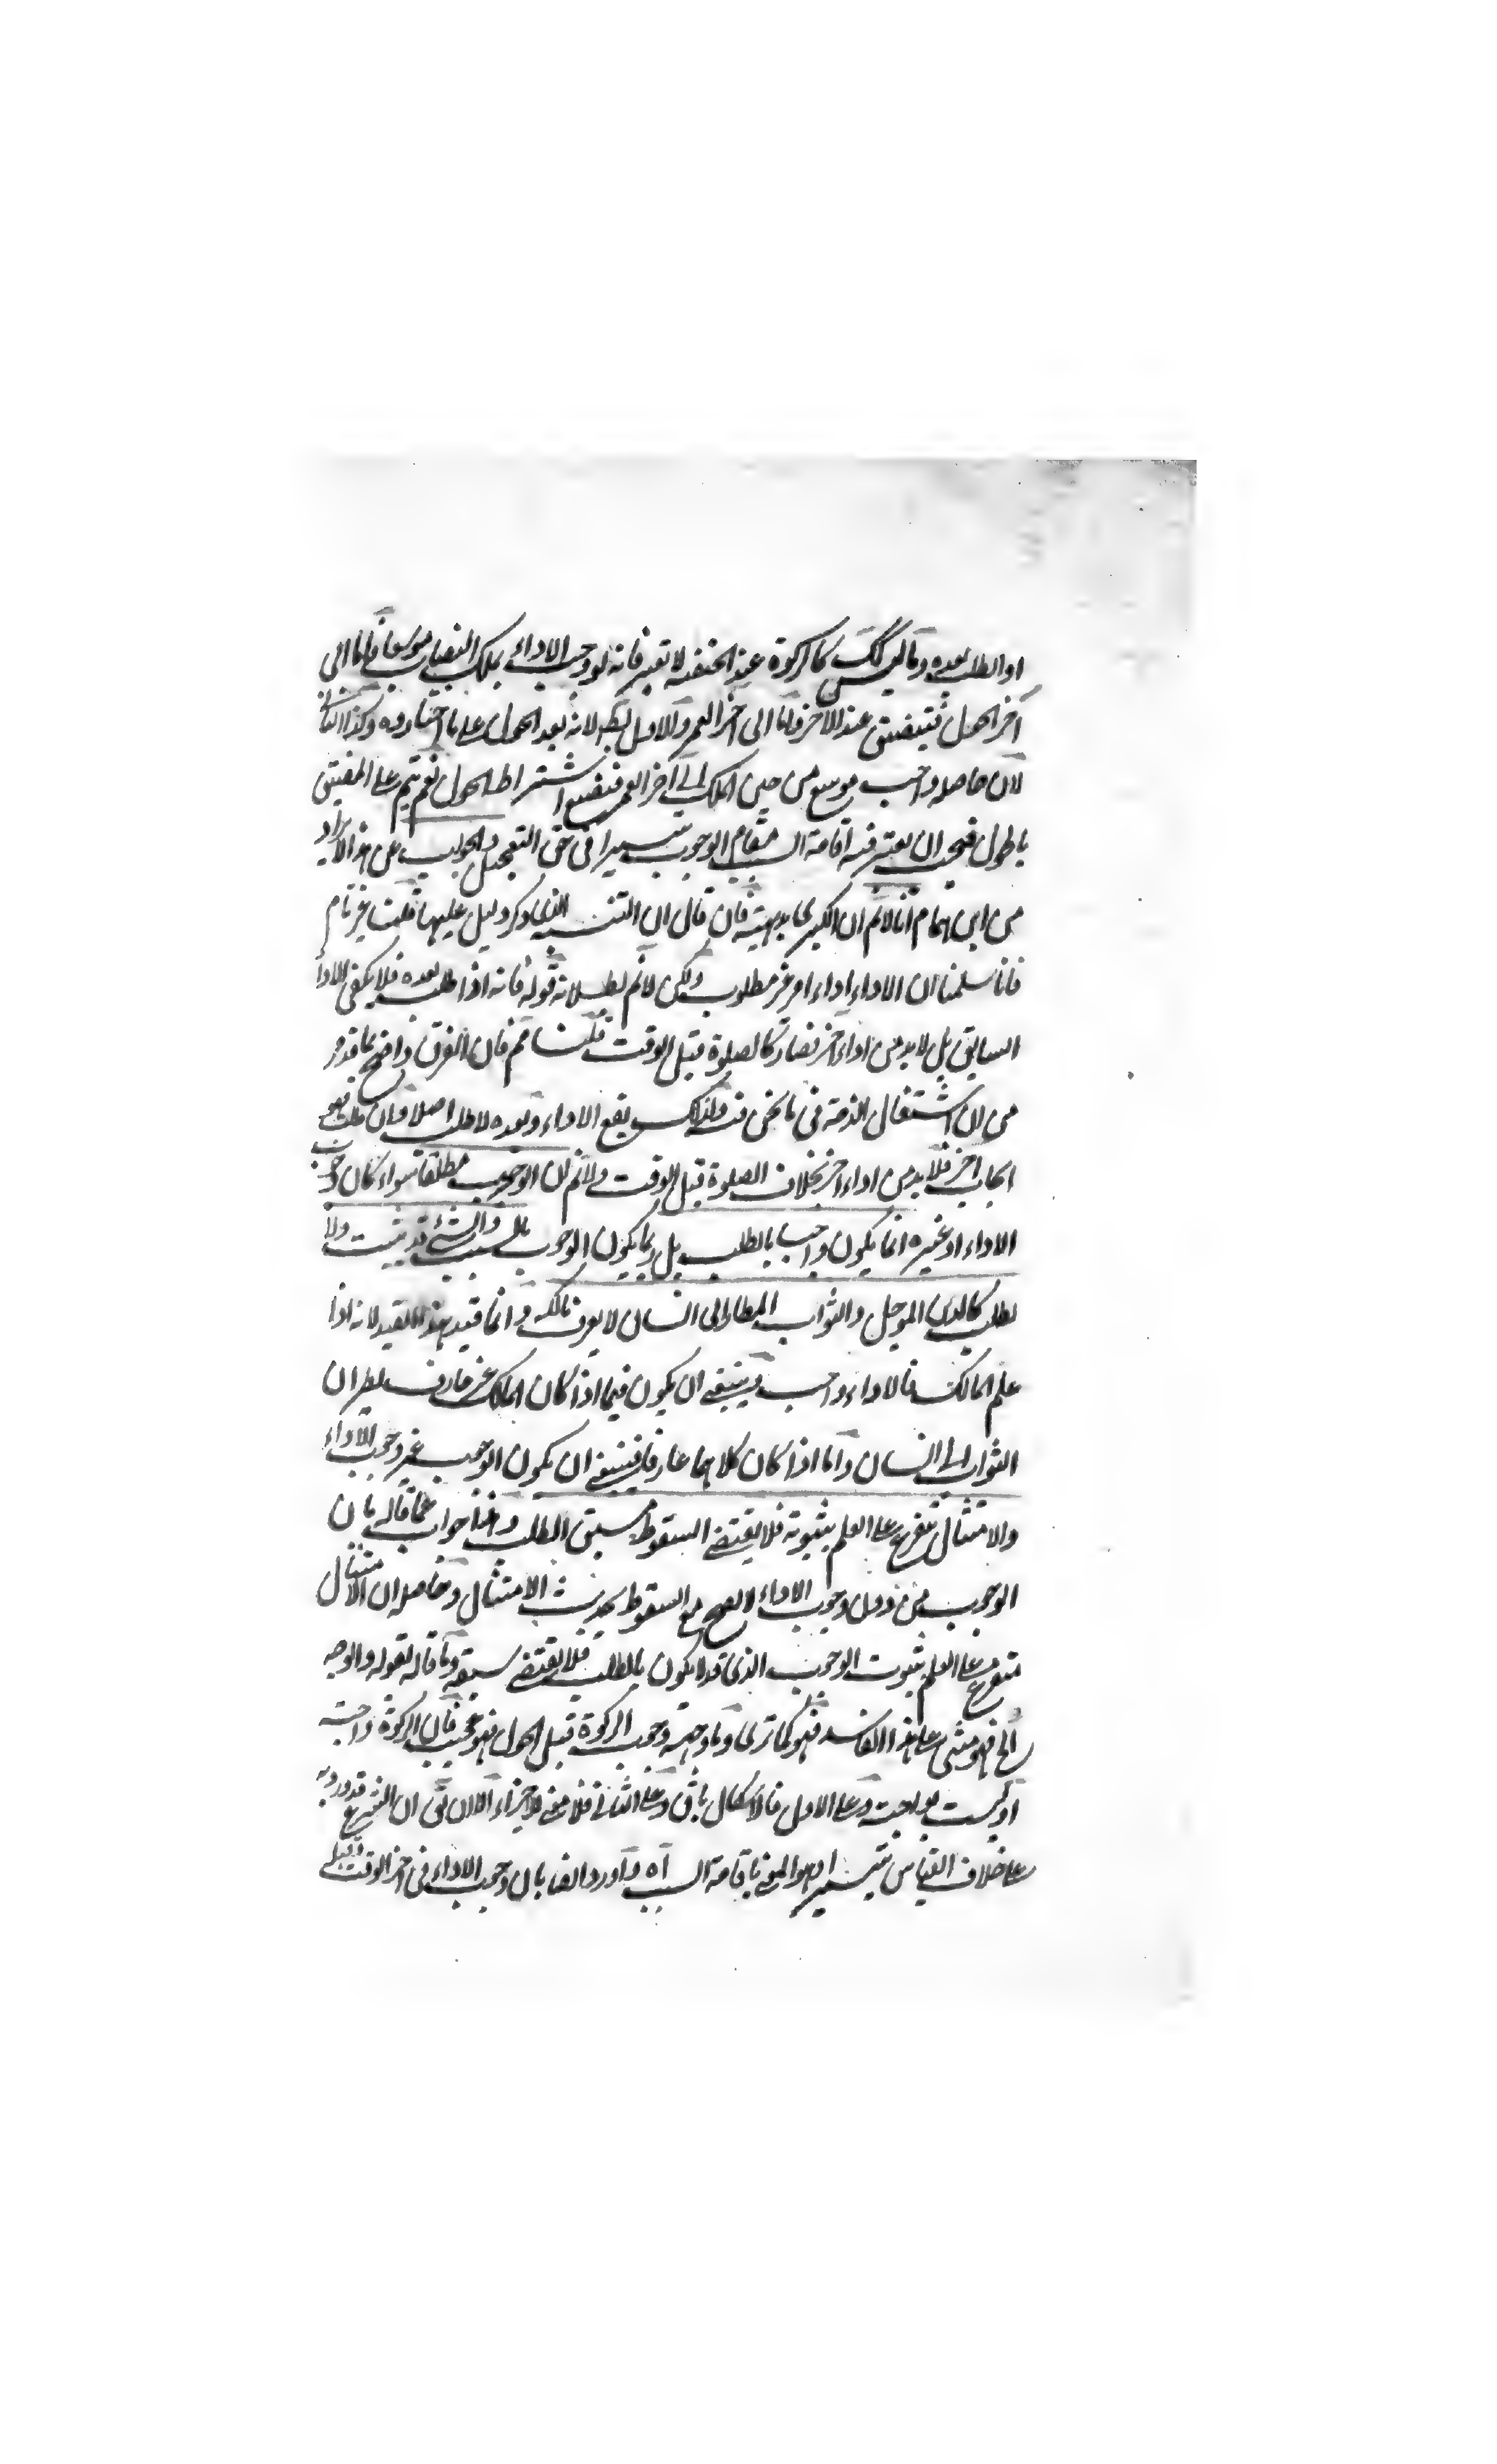 او الطلب بعده وما ليس كك كالزكوة عند الحنفية لا تعتبر فانه لو وجب الاداء بملك النصاب موسعا فاما الى
آخر الحول فيتضيق عند الآخر واما الى آخر العمر والاول بط لانه بعد الحول على ما اختاروه وكذا الثاني
لان حاصله واجب موسع من حين الملك الى آخر العمر فيضيع اشتراط الحول نعم يتم على المضيق
بالحول فيجب ان يعتبر فيه اقامة السبب مقام الوجوب تيسيرا في حق التعجيل والجواب عن هذا الايراد
من ابن همام انا لا نم ان الكبرى بديهية فان قال ان التنبيه الذي ذكر دليل عليها قلت غير تام
فانا سلمنا ان الاداء اداء امر غير مطلوب ولكن لا نم بطلانه قوله فانه اذا طلب بعده فلا يكفي الاداء
السابق بل لا بد من اداء آخر فصار كالصلوة قبل الوقت قلنا مم فان الفرق واضح بما قدر
من ان اشتغال الذمة في ما نحن فيه ولذلك يقع الاداء وبعده لا طلب اصلا وان طلب فهو
ايجاب آخر فلا بد من اداء آخر بخلاف الصلوة قبل الوقت ولا نم ان الوجوب مطلقا سواء كان وجوب
الاداء او غيره انما يكون واجبا بالطلب بل ربما يكون الوجوب بالسبب والشئ قد يثبت ولا
يطلب كالدين المؤجل والثوب المطار الى انسان لا يعرف مالكه وانما قيد بهذا القيد لانه اذا
علم المالك فالاداء واجب وينبغي ان يكون فيما اذا كان المالك غير عارف بطيران
الثوب الى انسان واما اذا كان كلاهما عارفا فينبغي ان يكون الوجوب غير وجوب الاداء
والامتثال يتفرع على العلم بثبوته فلا يقتضي السقوط سبق الطلب وهذا جواب عما قاله بان
الوجوب من دون وجوب الاداء لا يصح مع السقوط بحدث الامتثال وحاصله ان الامتثال
متفرع على العلم بثبوت الوجوب الذي قد لا يكون بالطلب فلا يقتضي سبقه وما قاله بقوله والوجه
الخ فهو مبنى على هذا الفاسد فهو كما ترى وما وجهه وجوب الزكوة قبل الحول فهو عجيب فان الزكوة واجبة
او ليست بواجبة وعلى الاول فالاشكال باق وعلى الثاني فلا معنى للاجزاء الا ان يق ان الشرع قد ورد به
على خلاف القياس تيسيرا وهو المعنى باقامة السبب اه واورد ايضا بان وجوب الاداء في آخر الوقت وقبله